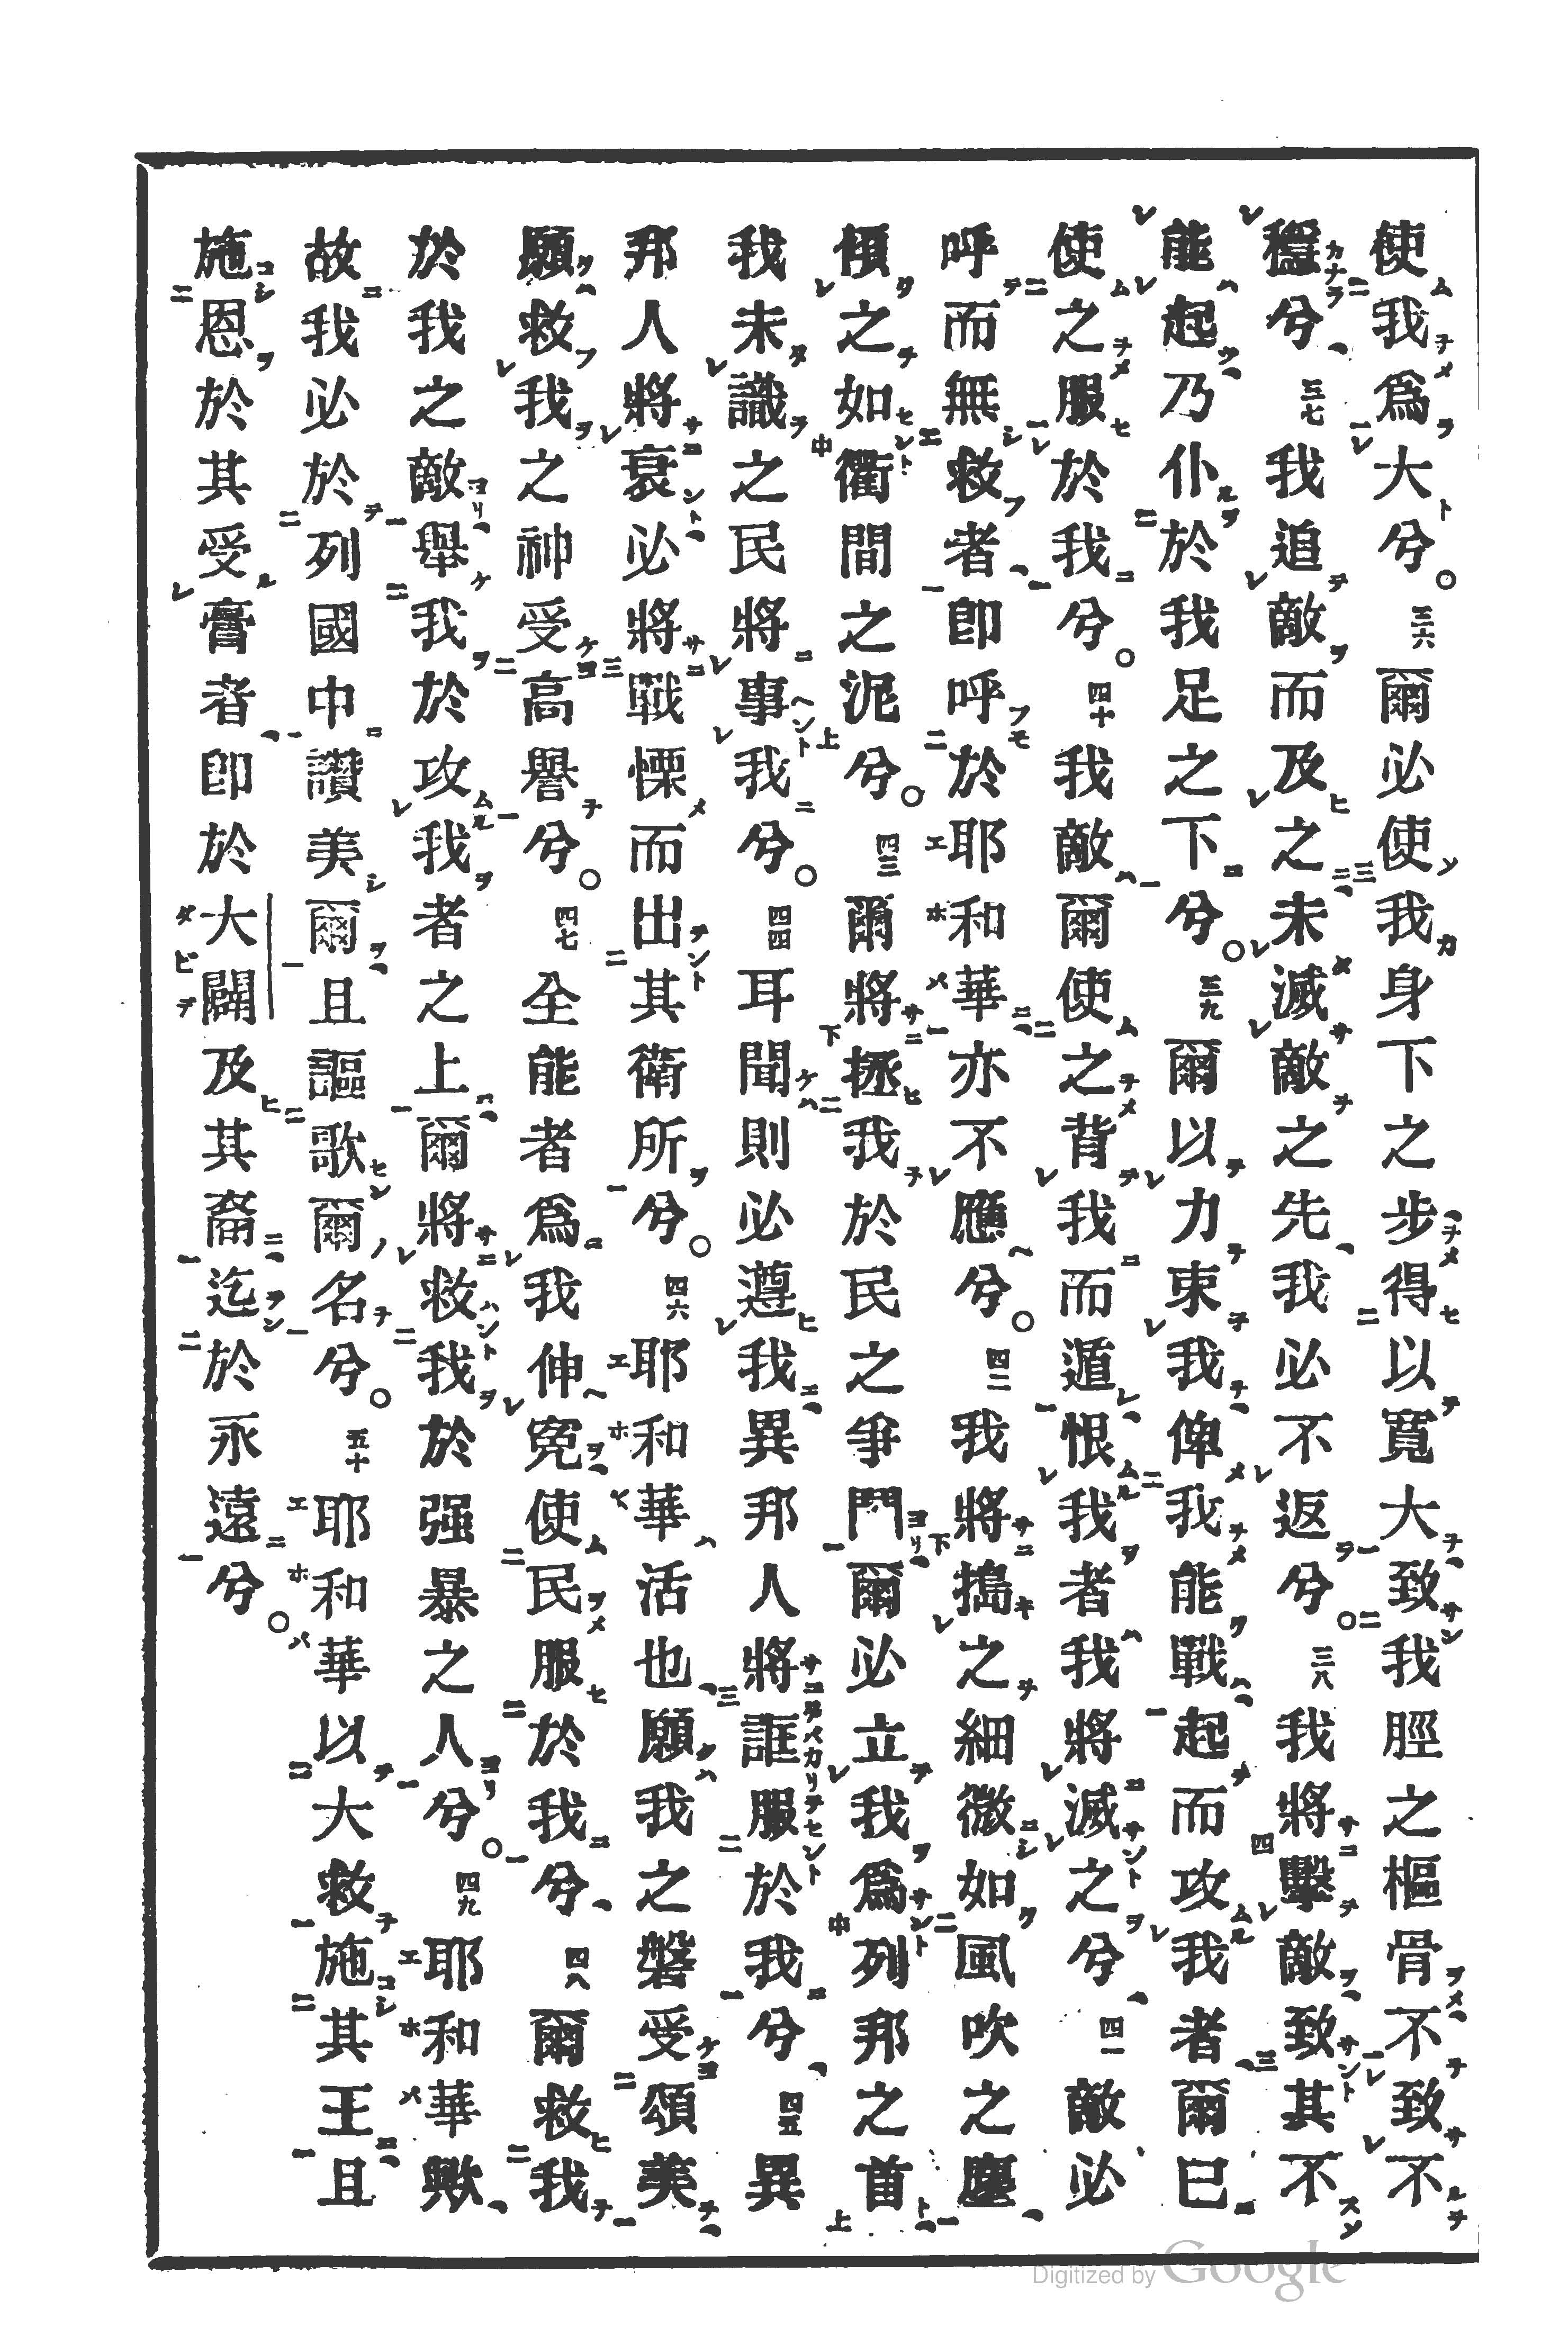 使我爲大兮。三六爾必使我身下之步得以寬大致我脛之樞骨不致不
穩兮、三七我追敵而及之未滅敵之先我必不返兮。三八我將擊敵致其不
能起乃仆於我足之下兮。三九爾以力束我俾我能戰起而攻我者爾已
使之服於我兮。四十我敵爾使之背我而遁恨我者我將滅之兮、四一敵必
呼而無救者卽呼於耶和華亦不應兮。四二我將搗之細微如風吹之塵
傾之如衢間之泥兮。四三爾將拯我於民之爭鬥爾必立我爲列邦之首
我未識之民將事我兮。四四耳聞則必遵我異邦人將誆服於我兮、四五異
邦人將衰必將戰慄而出其衛所兮。四六耶和華活也願我之磐受頌美
願救我之神受高譽兮。四七全能者爲我伸寃使民服於我兮、四八爾救我
於我之敵舉我於攻我者之上爾將救我於强暴之人兮。四九耶和華歟
故我必於列國中讚美爾且謳歌爾名兮。五十耶和華以大救施其王且
施恩於其受膏者卽於大闢及其裔迄於永遠兮。
Digitized by Google